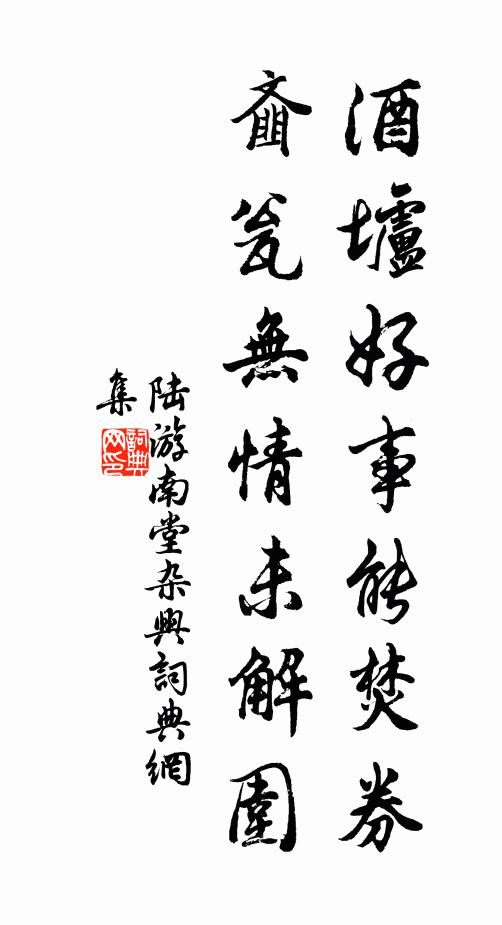 酒壚好事能焚券
齑瓮無情未解圍
陆游南堂杂興詞典網
集
詞典网印